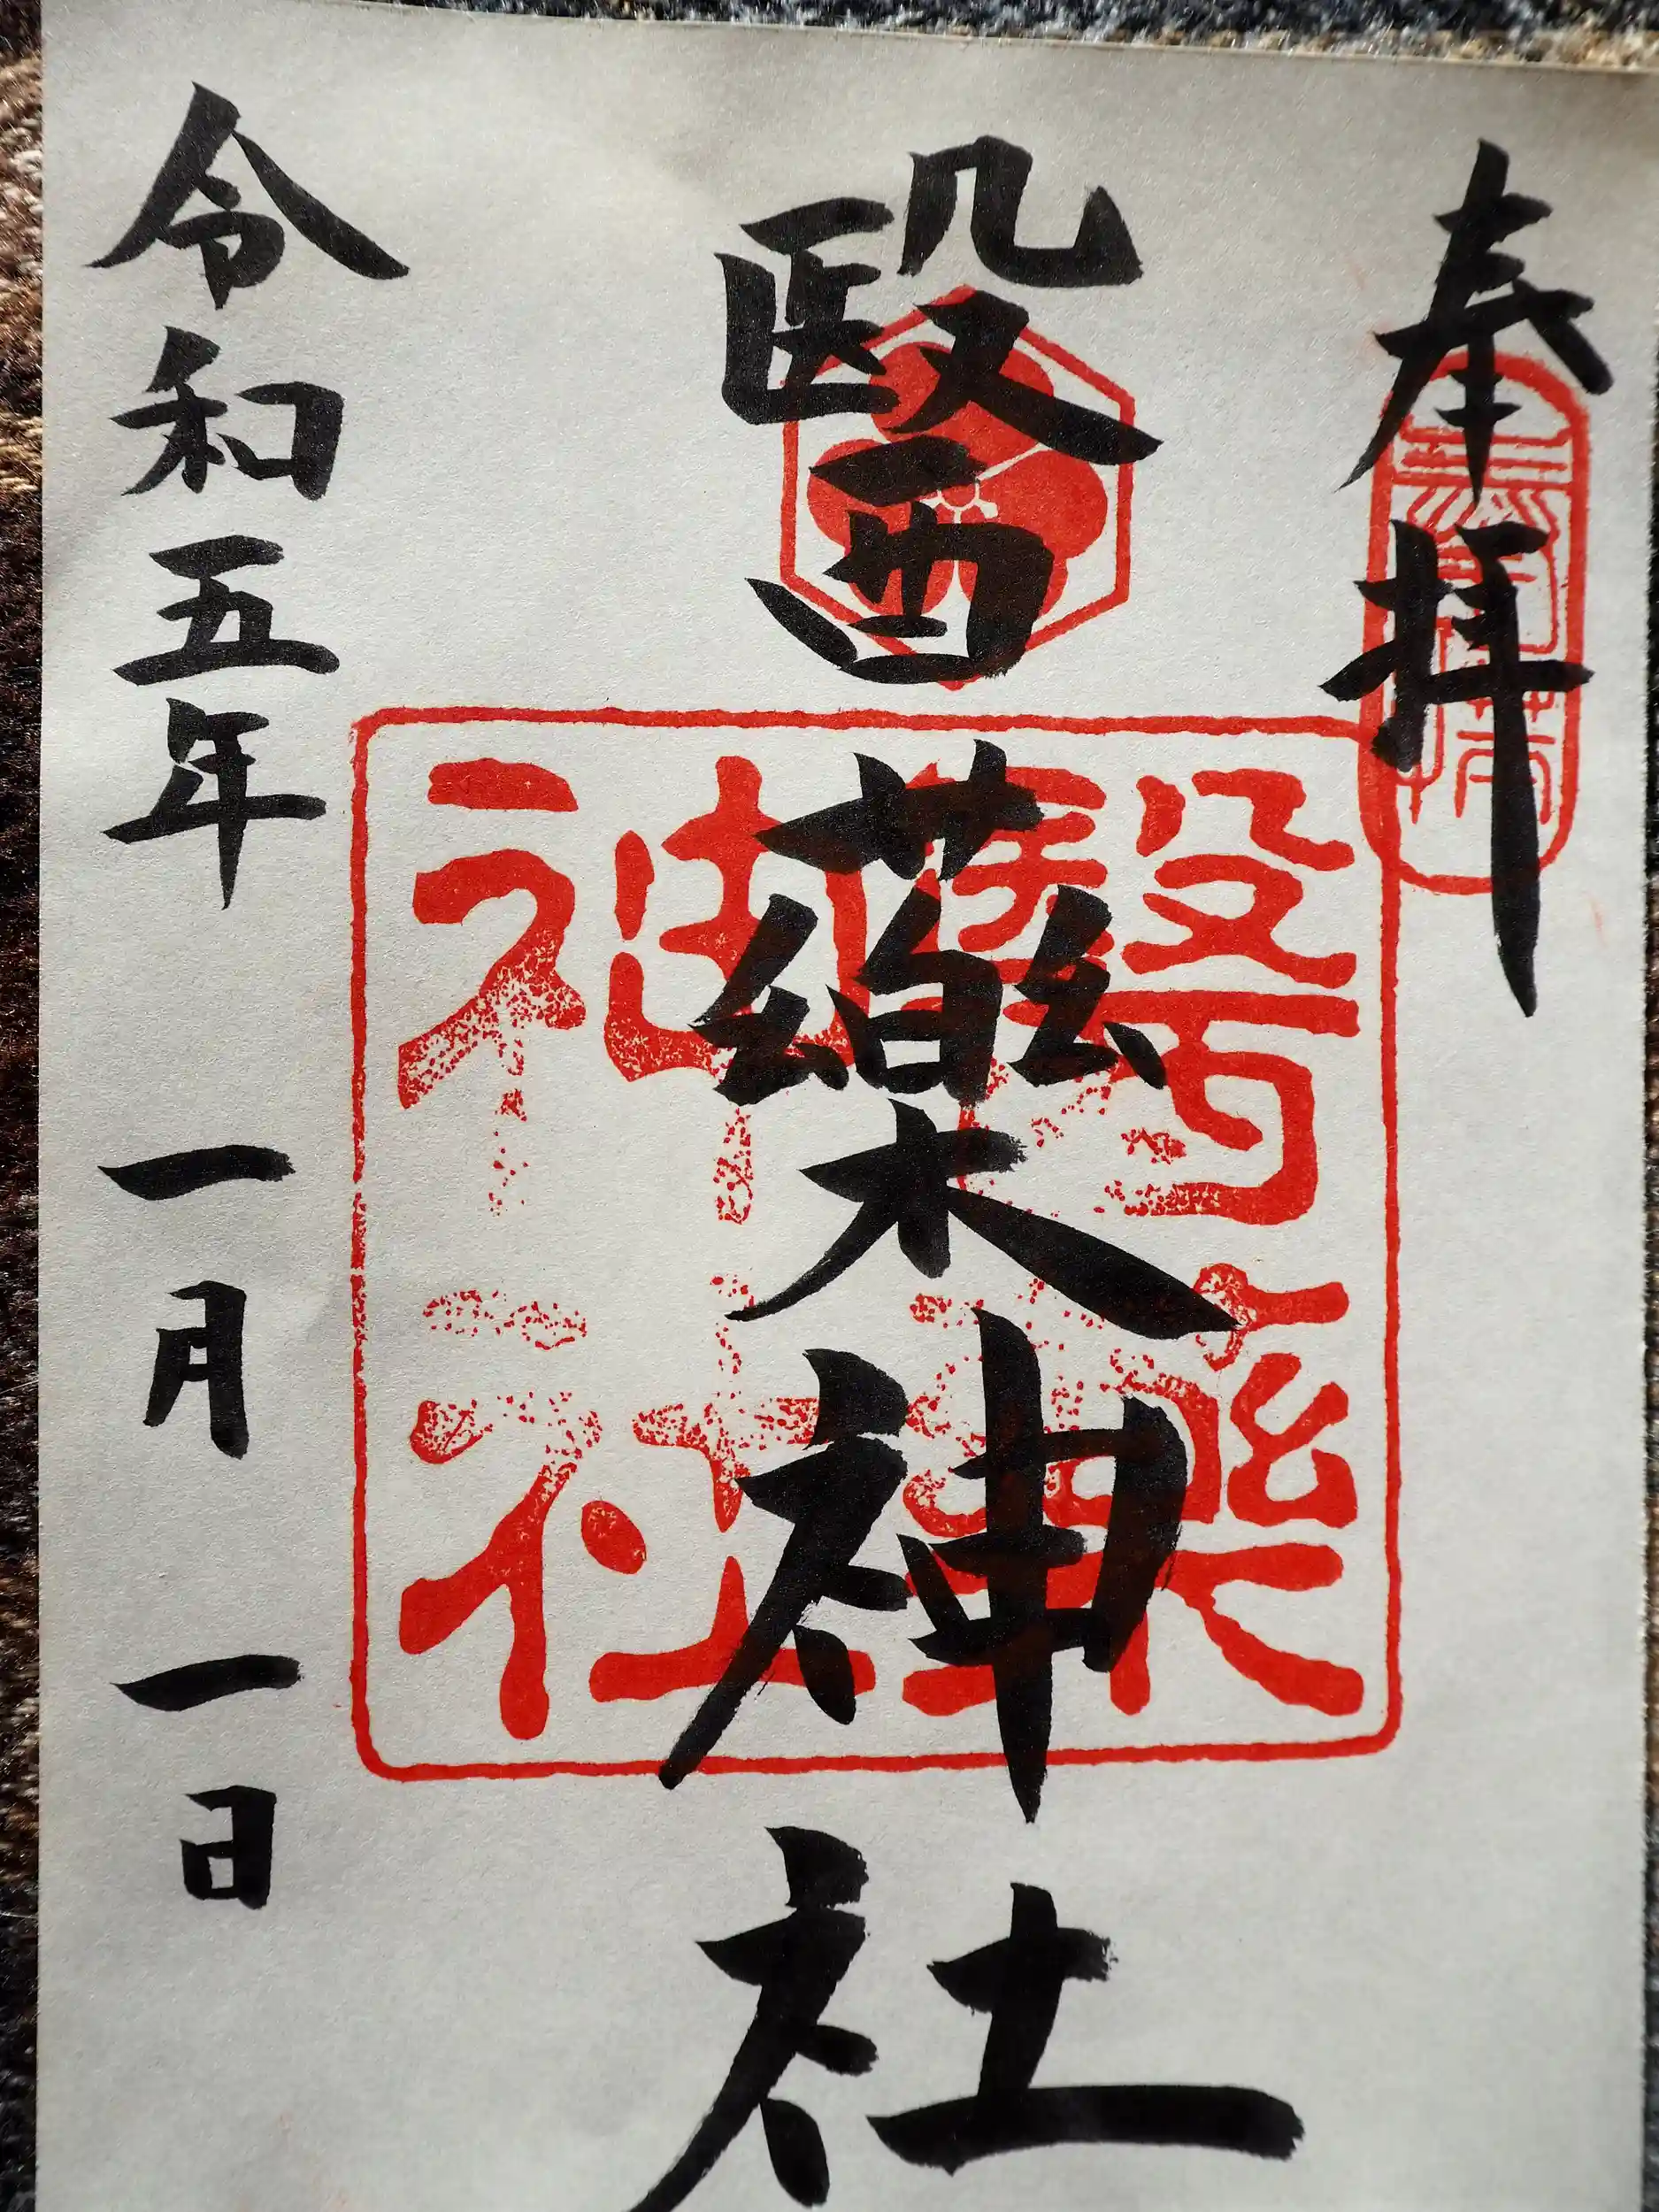 奉拝
醫藥神社
醫藥
神社
令和五年 一月 一日